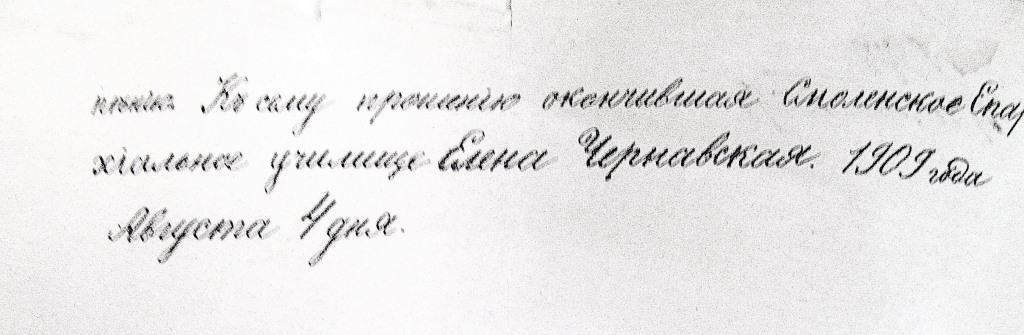 Къ сему прошенію окончившая Смоленское Епар
хіальное училище Елена Чернавская. 1909 года
Августа 4 дня.